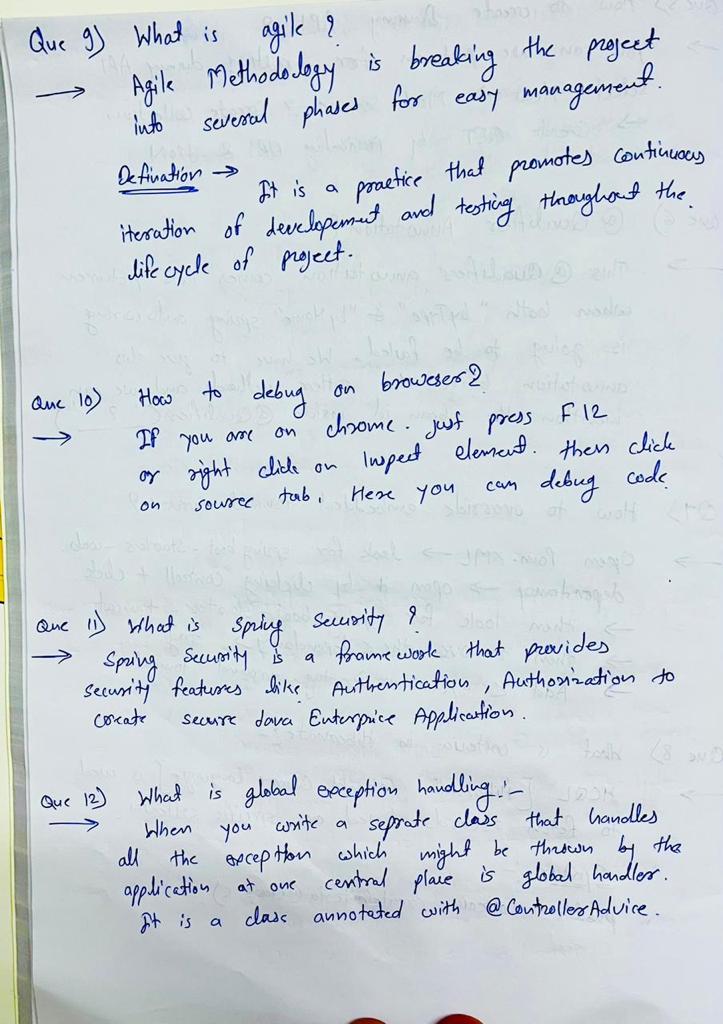 Que 9) What is agile ?
→ Agile Methodology is breaking the project
into several phases for easy management.
Defination → It is a practice that promotes continuous
iteration of developement and testing throughout the
life cycle of project.
Que 10) How to debug on broweser?
→ If you are on chrome. just press F12
or right click on Inspect element. then click
on source tab. Here you can debug code
Que 11) What is Spring Security ?
→ Spring Security is a framework that provides
security features like Authentication, Authorization to
create secure Java Enterprice Application.
Que 12) What is global exception handling :-
→ When you write a seprate class that handles
all the exception which might be thrown by the
application at one central place is global handler.
It is a class annotated with @ControllerAdvice.